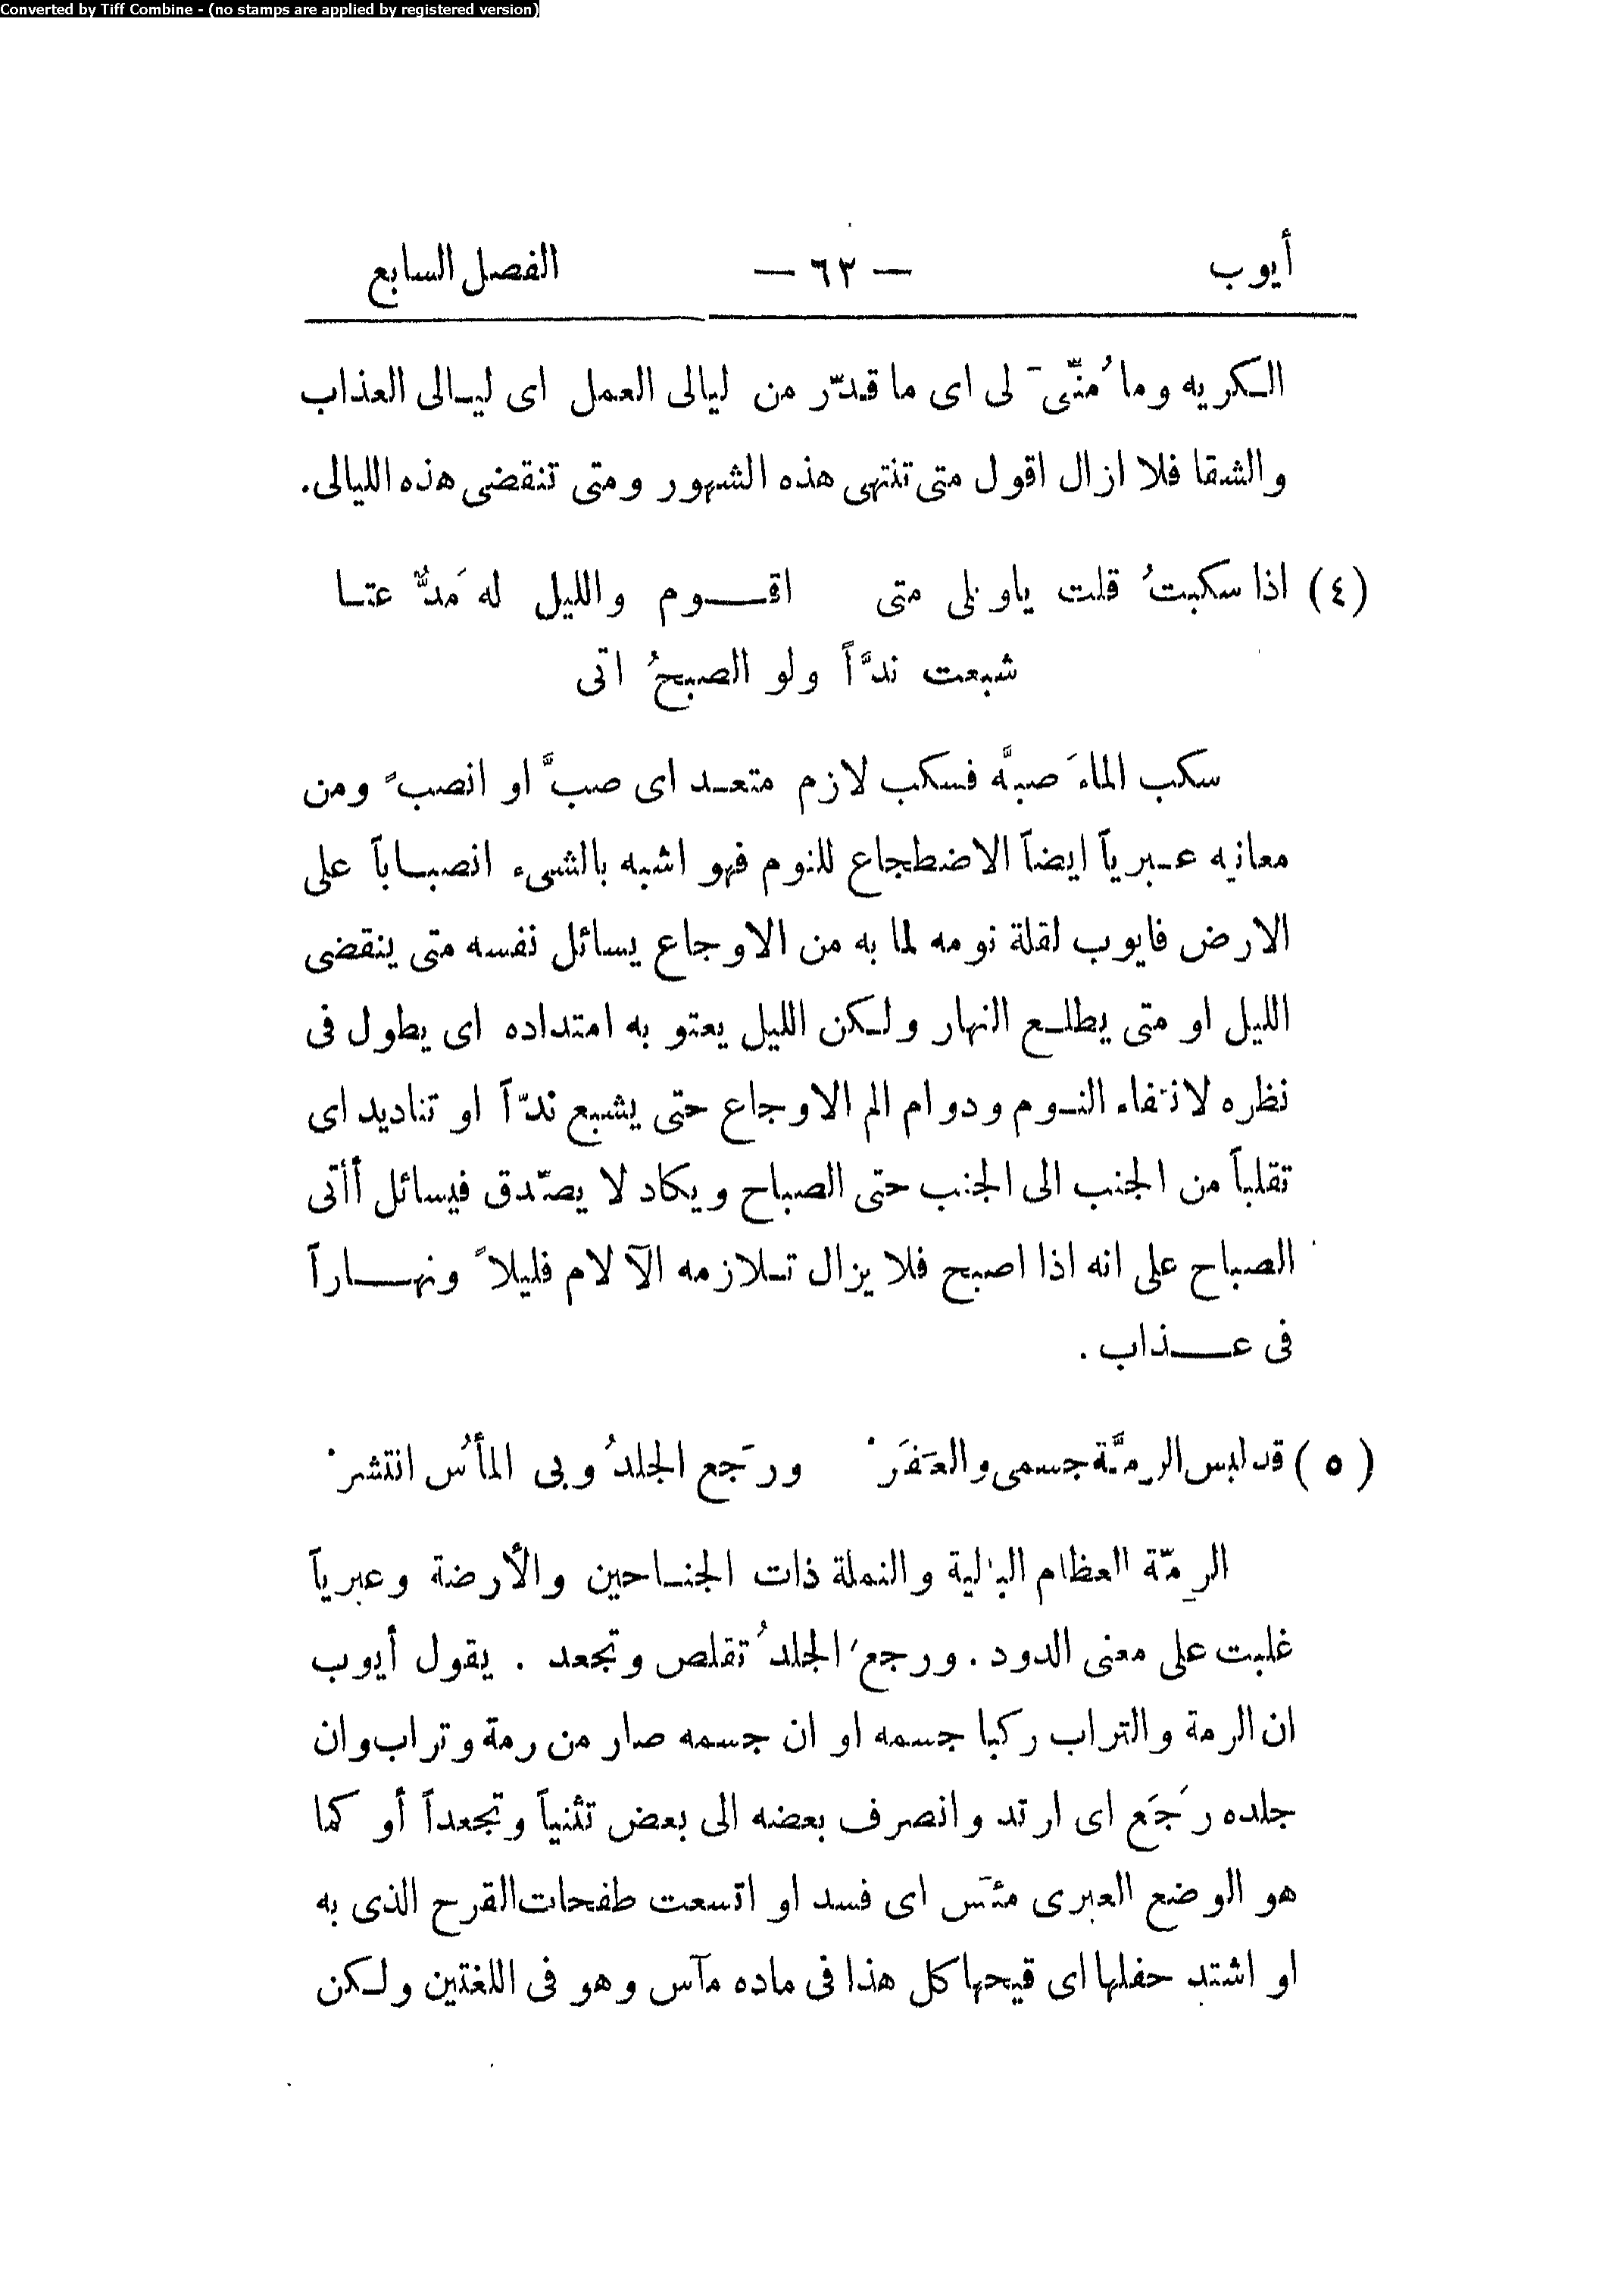 Converted by Tiff Combine - (no stamps are applied by registered version)
أيوب — ٦٣ — الفصل السابع
الكريه وما مُنّىَ لى اى ما قدّر من ليالى العمل اى ليالى العذاب
والشقا فلا ازال اقول متى تنتهى هذه الشهور ومتى تنقضى هذه الليالى.
(٤) اذا سكبتُ قلت ياويلى متى اقوم والليل له مَدٌّ عتا
شبعت ندَّاً ولو الصبحُ اتى
سكب الماءَ صبَّه فسكب لازم متعد اى صبَّ او انصبَّ ومن
معانيه عبرياً ايضاً الاضطجاع للنوم فهو اشبه بالشىء انصباباً على
الارض فايوب لقلة نومه لما به من الاوجاع يسائل نفسه متى ينقضى
الليل او متى يطلع النهار ولكن الليل يعتو به امتداده اى يطول فى
نظره لانتفاء النوم ودوام الم الاوجاع حتى يشبع ندّاً او تناديد اى
تقلباً من الجنب الى الجنب حتى الصباح ويكاد لا يصدّق فيسائل أأتى
الصباح على انه اذا اصبح فلا يزال تلازمه الآلام فليلاً ونهاراً
فى عذاب .
(٥) قد لبس الرِمَّة جسمى والعَفَرْ ورَجع الجلدُ وبى المأسُ انتشرْ
الرِمّة العظام البالية والنملة ذات الجناحين والأرضة وعبرياً
غلبت على معنى الدود . ورجع الجلدُ تقلص وتجعد . يقول أيوب
ان الرمة والتراب ركبا جسمه او ان جسمه صار من رمة وتراب وان
جلده رَجَع اى ارتد وانصرف بعضه الى بعض تثنياً وتجعداً أو كما
هو الوضع العبرى مئس اى فسد او اتسعت طفحات القرح الذى به
او اشتد حفلها اى قيحها كل هذا فى ماده مآس وهو فى اللغتين ولكن